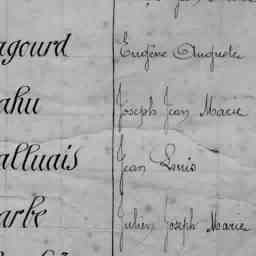 agourd Eugène Auguste
ahu Joseph Jean Marie
alluais Jean Louis
arbe Julien Joseph Marie